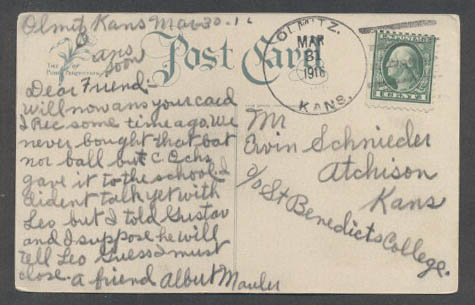 Olmitz Kans Mar 30 - 16
ans
soon
Post Card
Dear Friend -
Will now ans your card
I Rec some time ago. We
never bought that bat
nor ball but C.C. Echs
gave it to the school. I
dident talk yet with
Leo but I told Gustav
and I suppose he will
tell Leo Guess I must
close. a friend Albert Mauler
OLMITZ.
MAR
31
1916
KANS.
Mr
Ervin Schnieder
Atchison
Kans
c/o St Benedicts College.